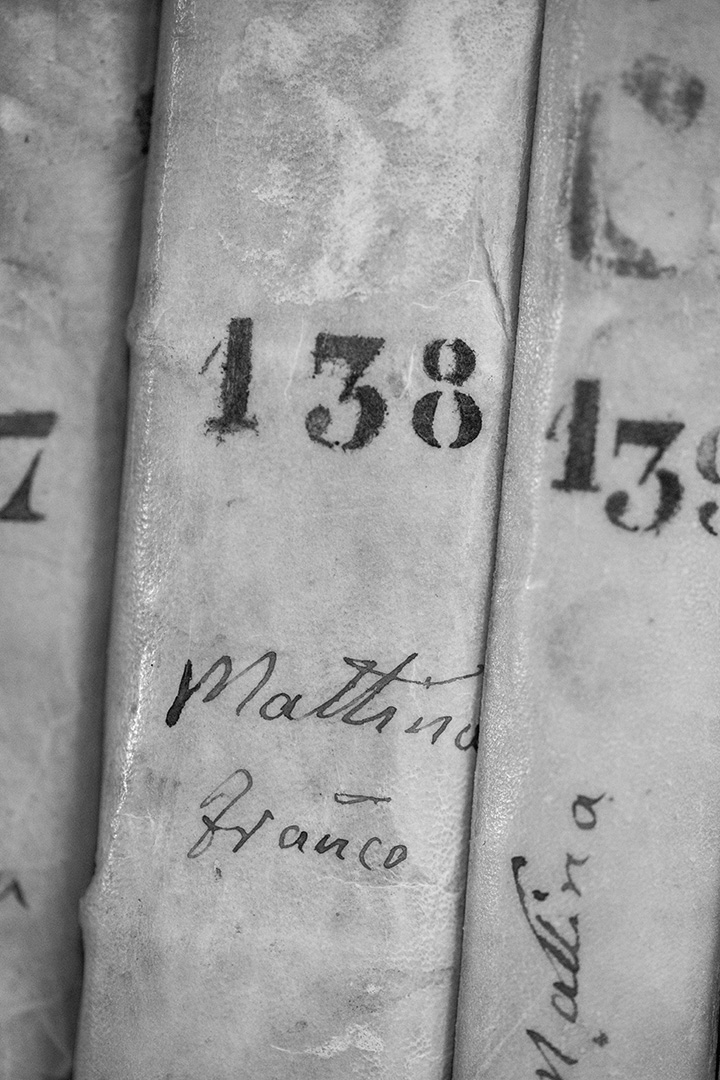 7
138
Mattina
Franco
139
Mattina